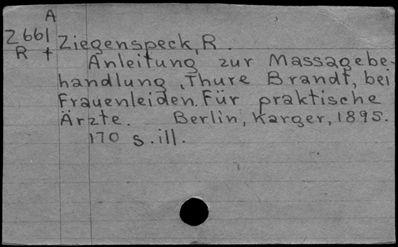 A
Z661 Ziegenspeck, R.
R +
Anleitung zur Massagebe-
handlung, Thure Brandt, bei
Frauenleiden. Für praktische
Ärzte. Berlin, Karger, 1895.
170 s. ill.